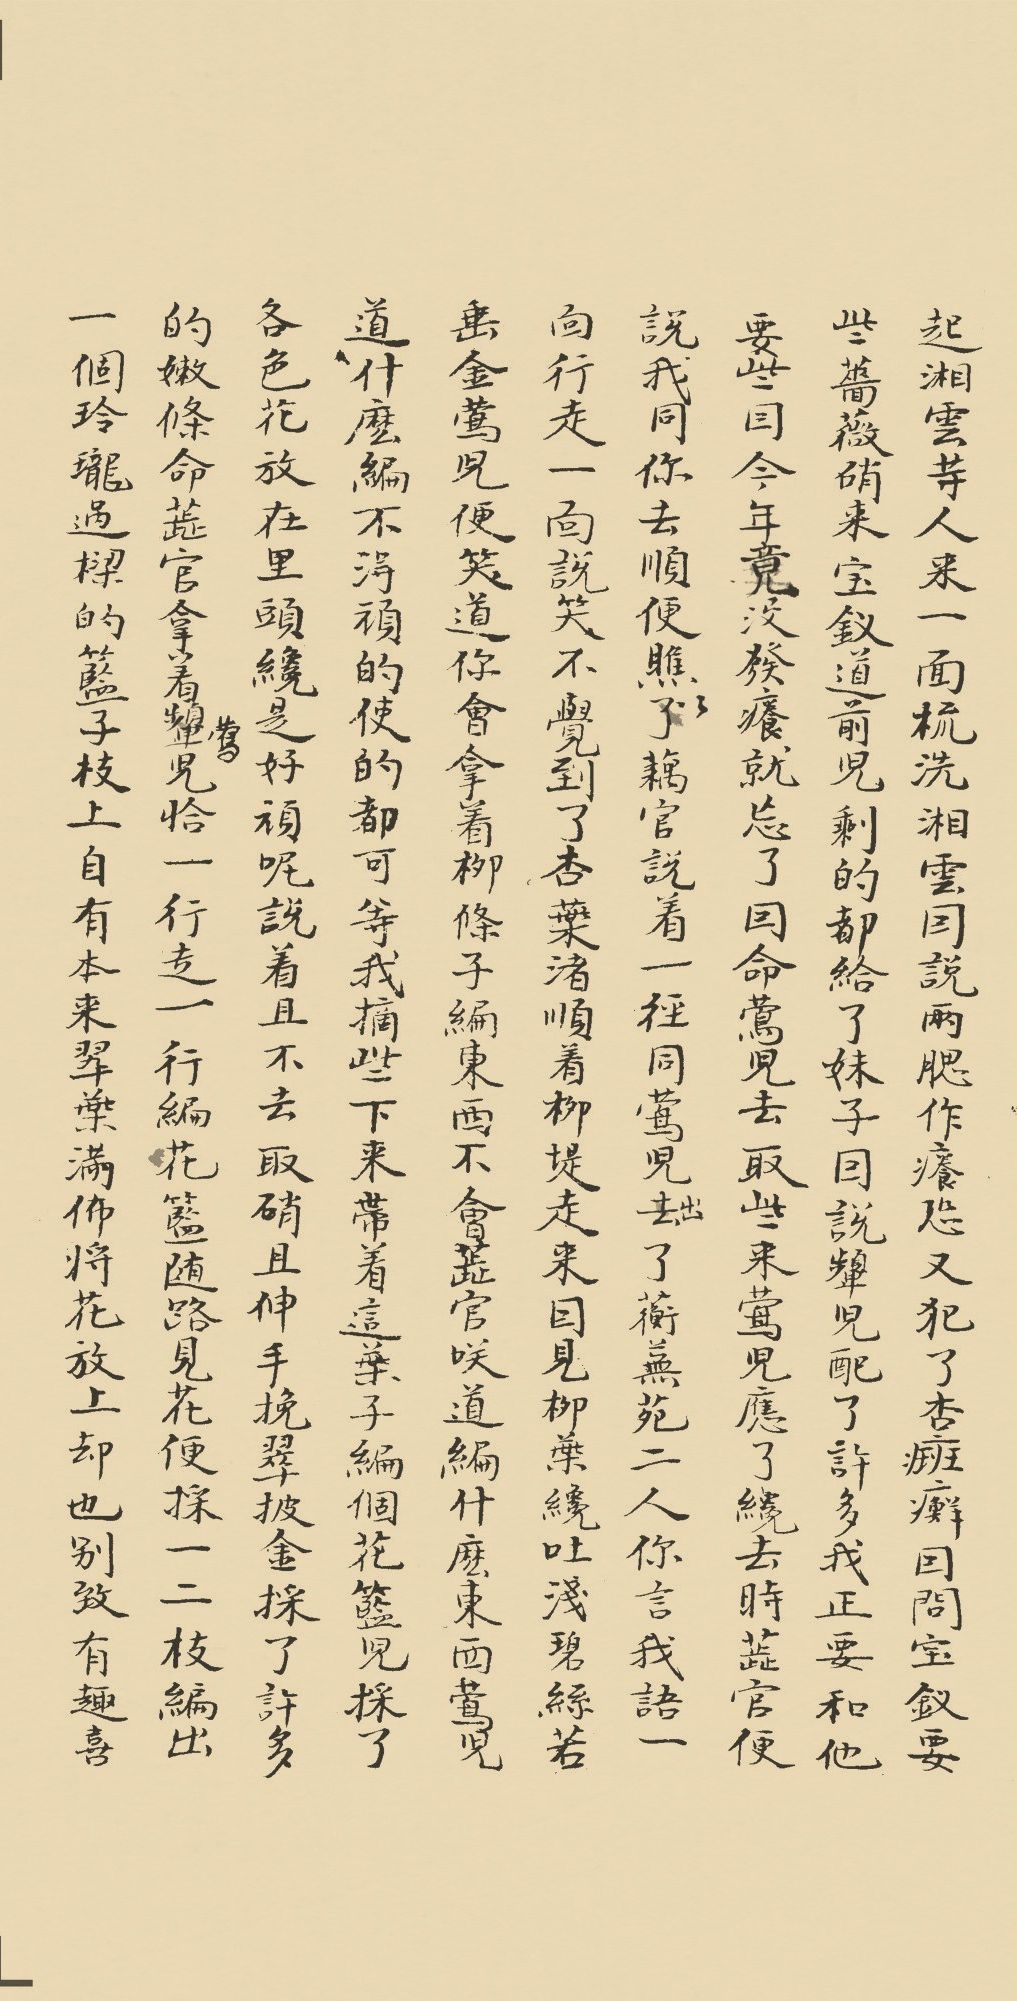 起湘雲等人来一面梳洗湘雲因說兩腮作癢恐又犯了杏癍癬因問宝釵要
些薔薇硝来宝釵道前児剩的都給了妹子因說顰児配了許多我正要和他
要些因今年竟没發癢就忘了因命鶯児去取些来鶯児應了纔去時蕋官便
說我同你去順便瞧了藕官說着一徑同鶯児出了蘅蕪苑二人你言我語一
面行走一面說笑不覺到了杏葉渚順着柳堤走来因見柳葉纔吐淺碧絲若
垂金鶯児便笑道你會拿着柳條子編東西不會蕋官咲道編什麽東西鶯児
道什麽編不得頑的使的都可等我摘些下来帶着這葉子編個花籃児採了
各色花放在里頭纔是好頑呢說着且不去取硝且伸手挽翠披金採了許多
的嫩條命蕋官拿着鶯児恰一行走一行編花籃随路見花便採一二枝編出
一個玲瓏過樑的籃子枝上自有本来翠葉滿佈将花放上却也别致有趣喜